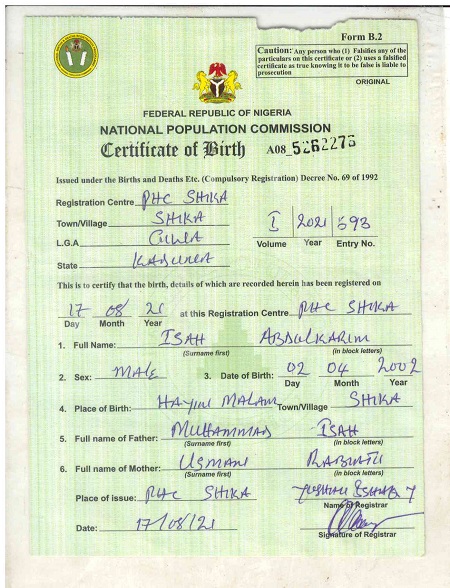 Form B.2
Caution: Any person who (1) Falsifies any of the
particulars on this certificate or (2) uses a falsified
certificate as true knowing it to be false is liable to
prosecution
ORIGINAL
FEDERAL REPUBLIC OF NIGERIA
NATIONAL POPULATION COMMISSION
Certificate of Birth A08_5262275
Issued under the Births and Deaths Etc. (Compulsory Registration) Decree No. 69 of 1992
Registration Centre PHC SHIKA
Town/Village SHIKA
L.G.A GIWA
State KADUNA
I 2021 593
Volume Year Entry No.
This is to certify that the birth, details of which are recorded herein has been registered on
17 08 21 at this Registration Centre PHC SHIKA
Day Month Year
1. Full Name: ISAH ABDULKARIM
(Surname first) (in block letters)
2. Sex: MALE 3. Date of Birth: 02 04 2002
Day Month Year
4. Place of Birth: HAYIN MALAM Town/Village SHIKA
5. Full name of Father: MUHAMMAD ISAH
(Surname first) (in block letters)
6. Full name of Mother: USMAN RABIATU
(Surname first) (in block letters)
Place of issue: PHC SHIKA
Name of Registrar
Date: 17/08/21
Signature of Registrar